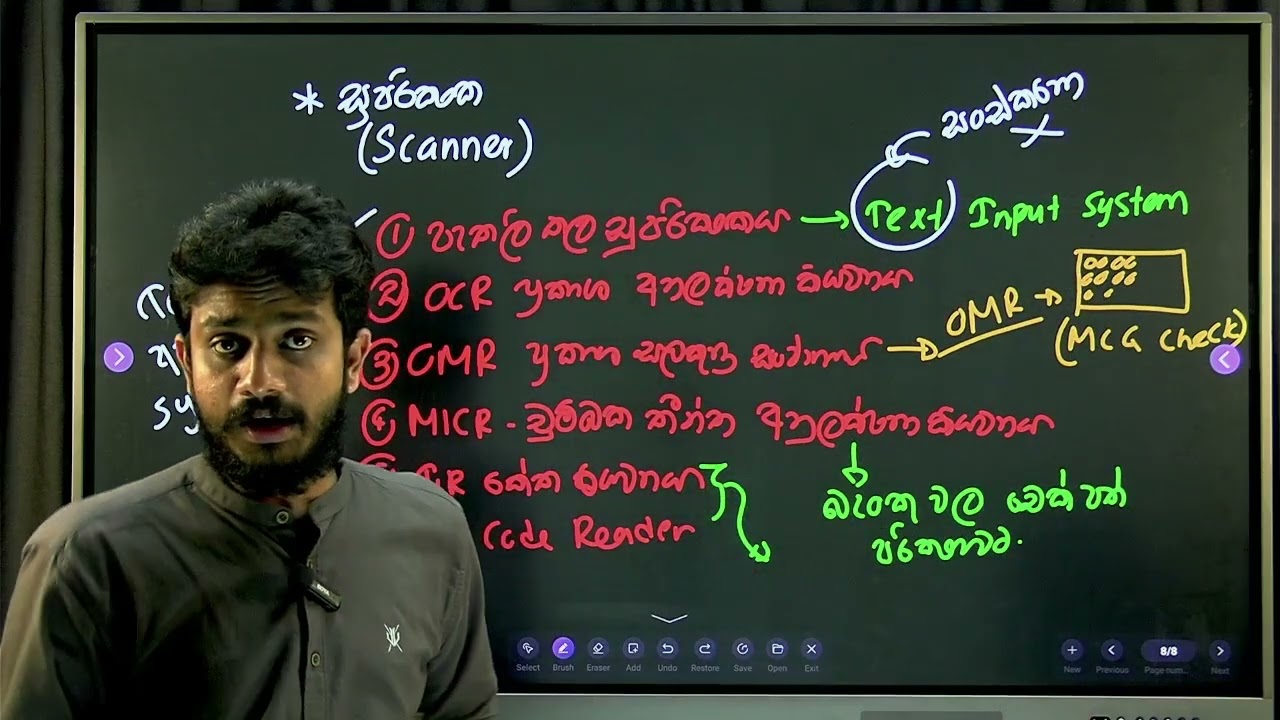 * සුපරීක්ෂක
(Scanner)
සංස්කරණ
① පැතලි තල සුපරීක්ෂකය → Text Input System
② OCR ප්‍රකාශ අනුලක්ෂණ කියවනය
③ OMR ප්‍රකාශ සලකුණු සංජානනය → OMR →
(MCQ check)
④ MICR - චුම්බක තීන්ත අනුලක්ෂණ කියවනය
කේත කියවනය
Code Reader
බැංකු වල චෙක් පත්
පරීක්ෂාවට.
Select Brush Eraser Add Undo Restore Save Open Exit
New Previous 8/8 Page num... Next